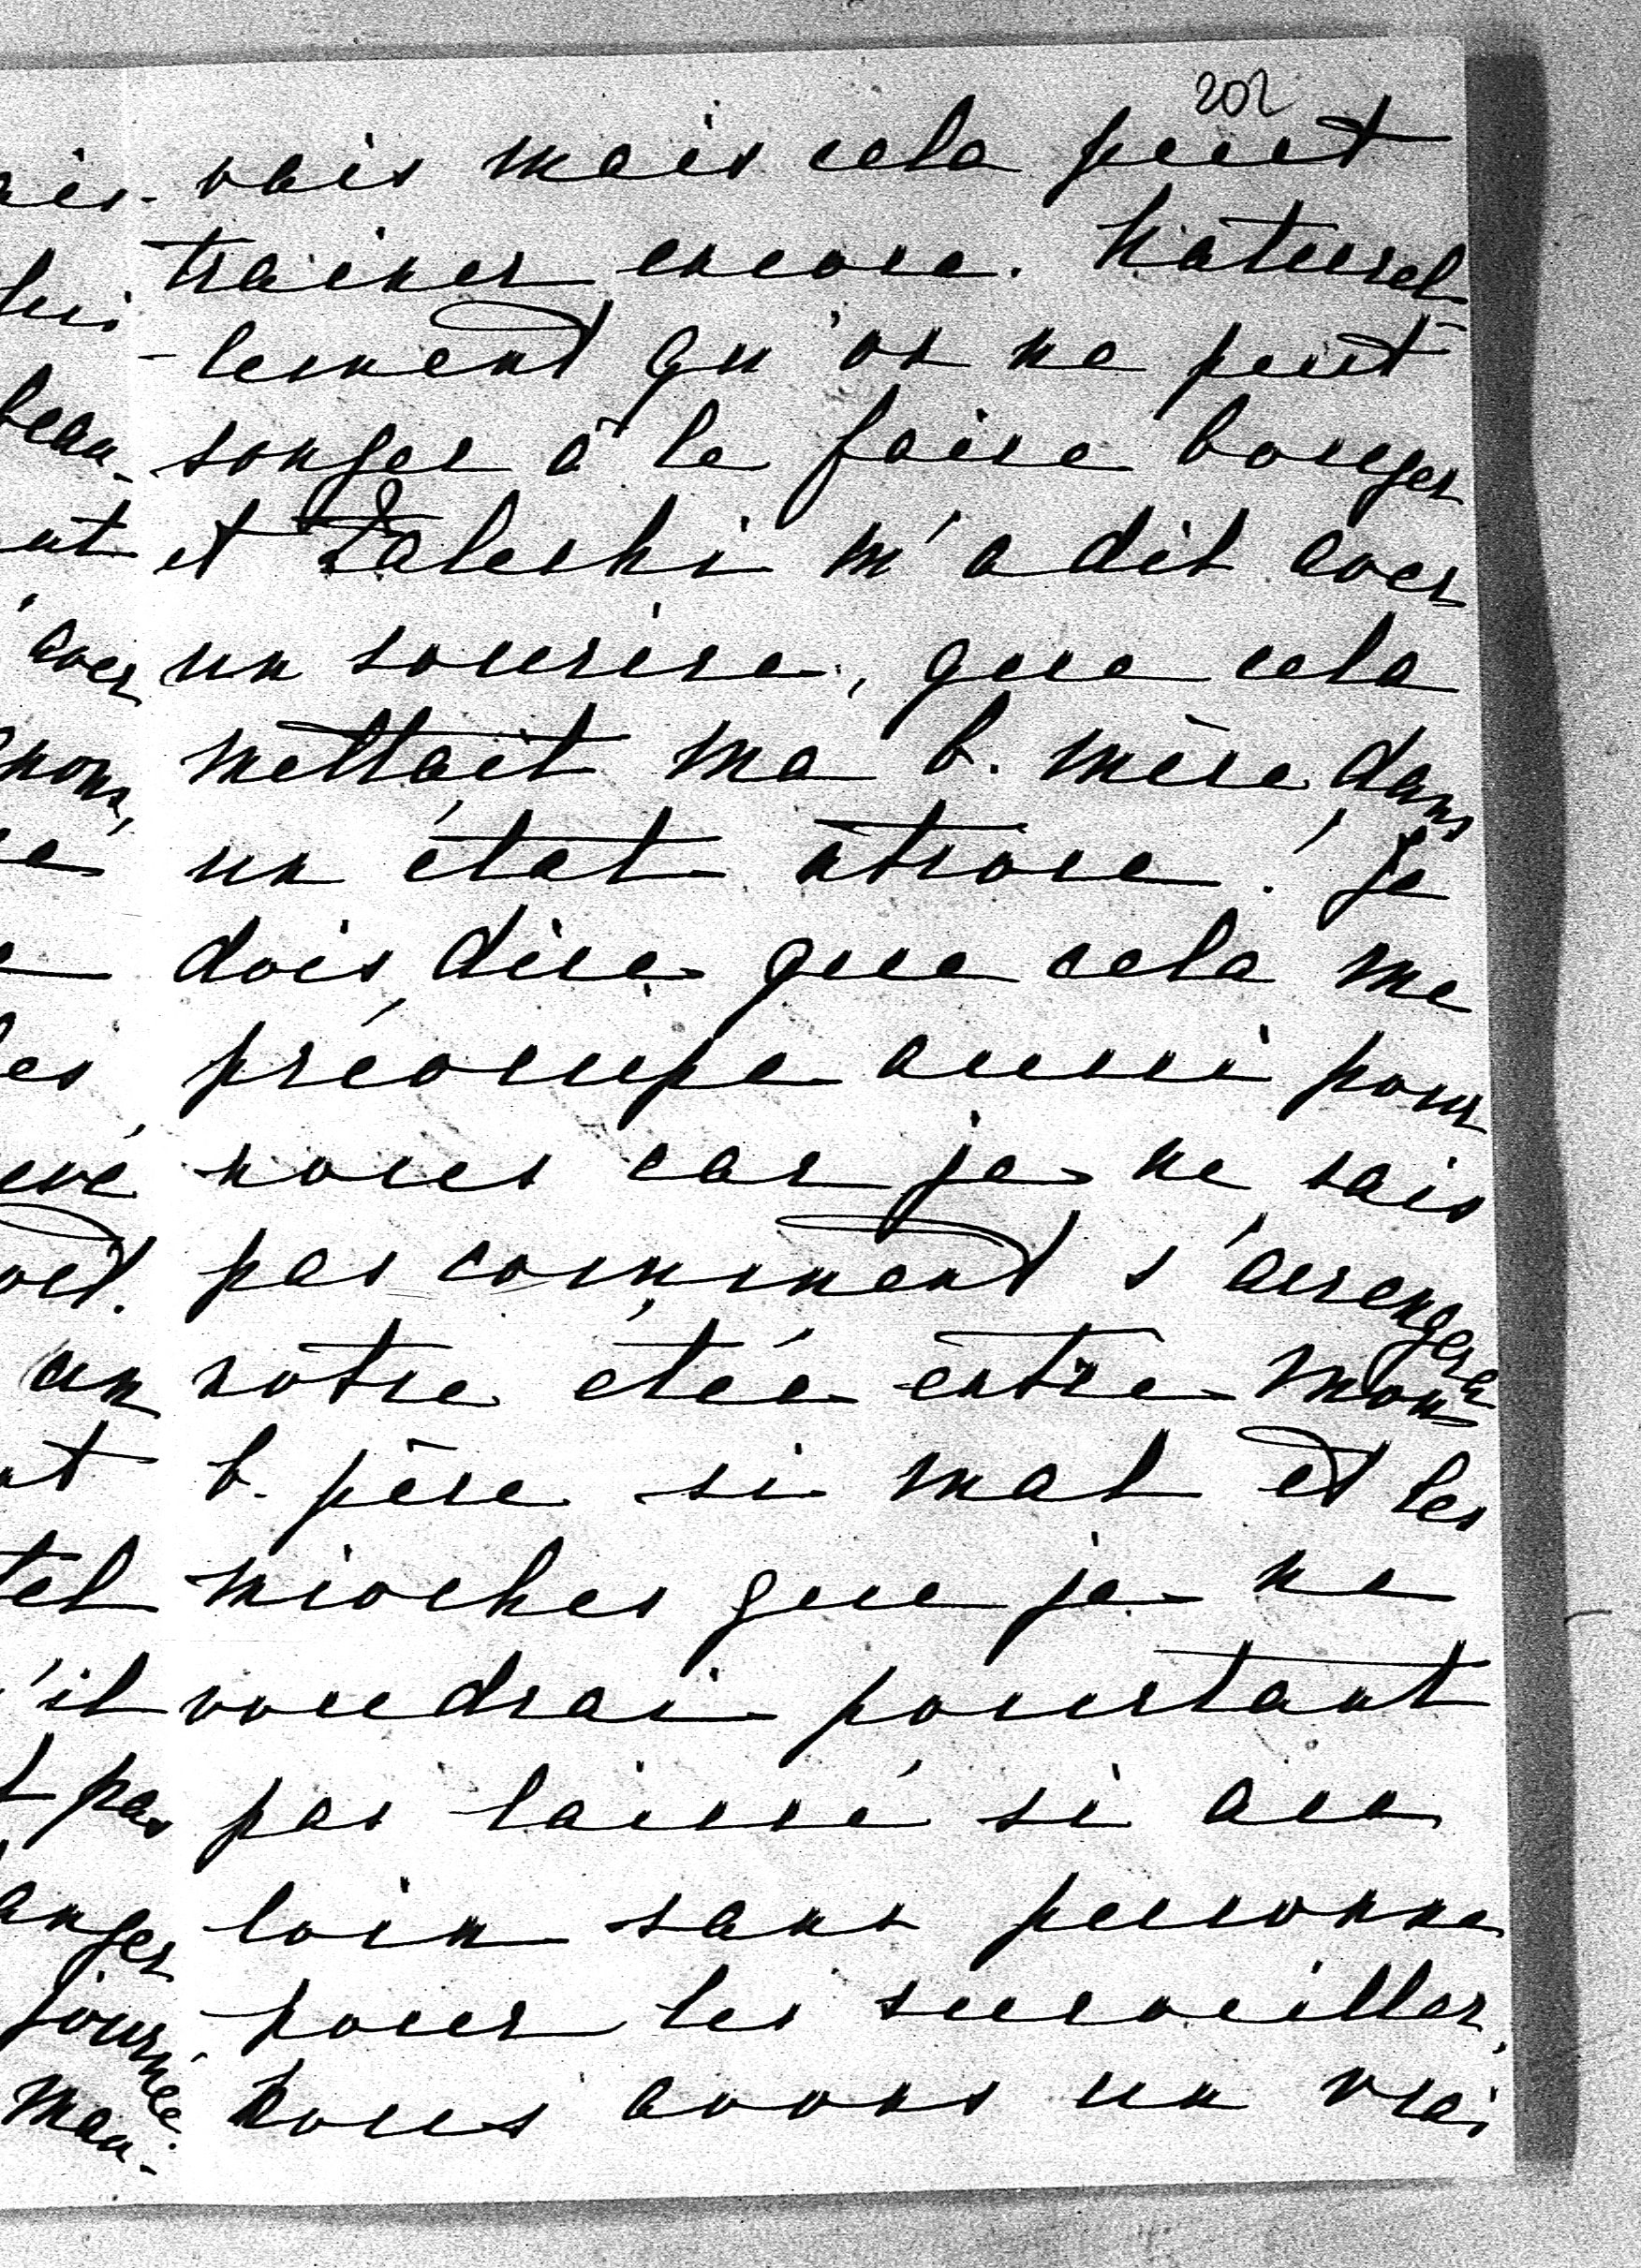 202
vais mais cela peut
trainer encore. Naturel
-lement qu'on ne peut
songer à le faire bouger
et Zaleski m'a dit avec
un sourire, que cela
mettait ma b. mère dans
un état atroce! Je
dois dire que cela me
préocupe aussi pour
nous car je ne sais
pas comment s'arrengera
notre étée entre mon
b. père si mal et les
mioches que je ne
voudrai pourtant
pas laissé si au
loin sans personne
pour les surveiller.
Nous avons un vrai
ais-
lui
beau-
nt
avec
nons,
e
les
evé
un
nt
tel
'il
t pas
anger
journée.
mau-